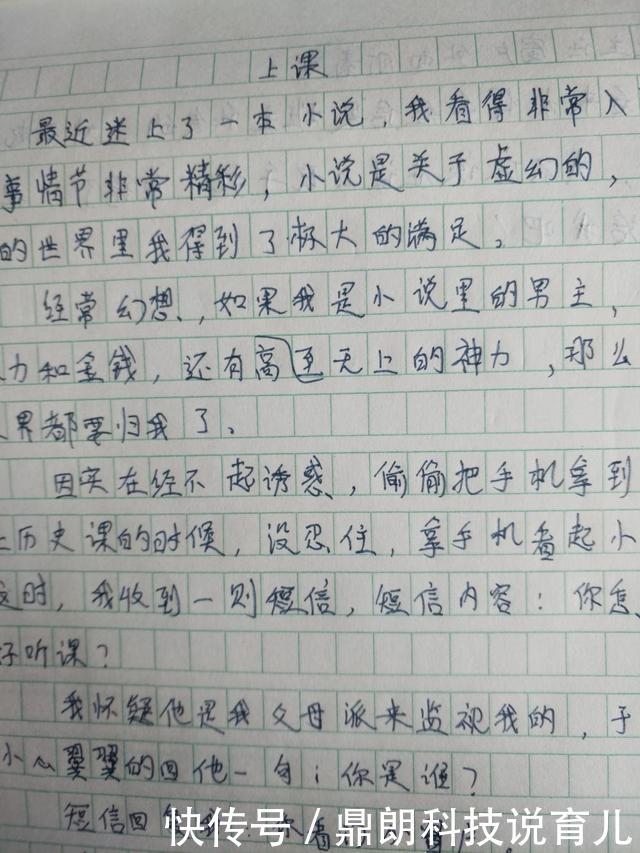 上课
最近迷上了一本小说,我看得非常入
事情节非常精彩,小说是关于虚幻的,
的世界里我得到了极大的满足。
经常幻想,如果我是小说里的男主,
力和金钱,还有高至无上的神力,那么
界都要归我了。
因实在经不起诱惑,偷偷把手机拿到
上历史课的时候,没忍住,拿手机看起小
这时,我收到一则短信,短信内容:你怎
好听课?
我怀疑他是我父母派来监视我的,于
小心翼翼的回他一句:你是谁?
短信回
快传号/鼎朗科技说育儿